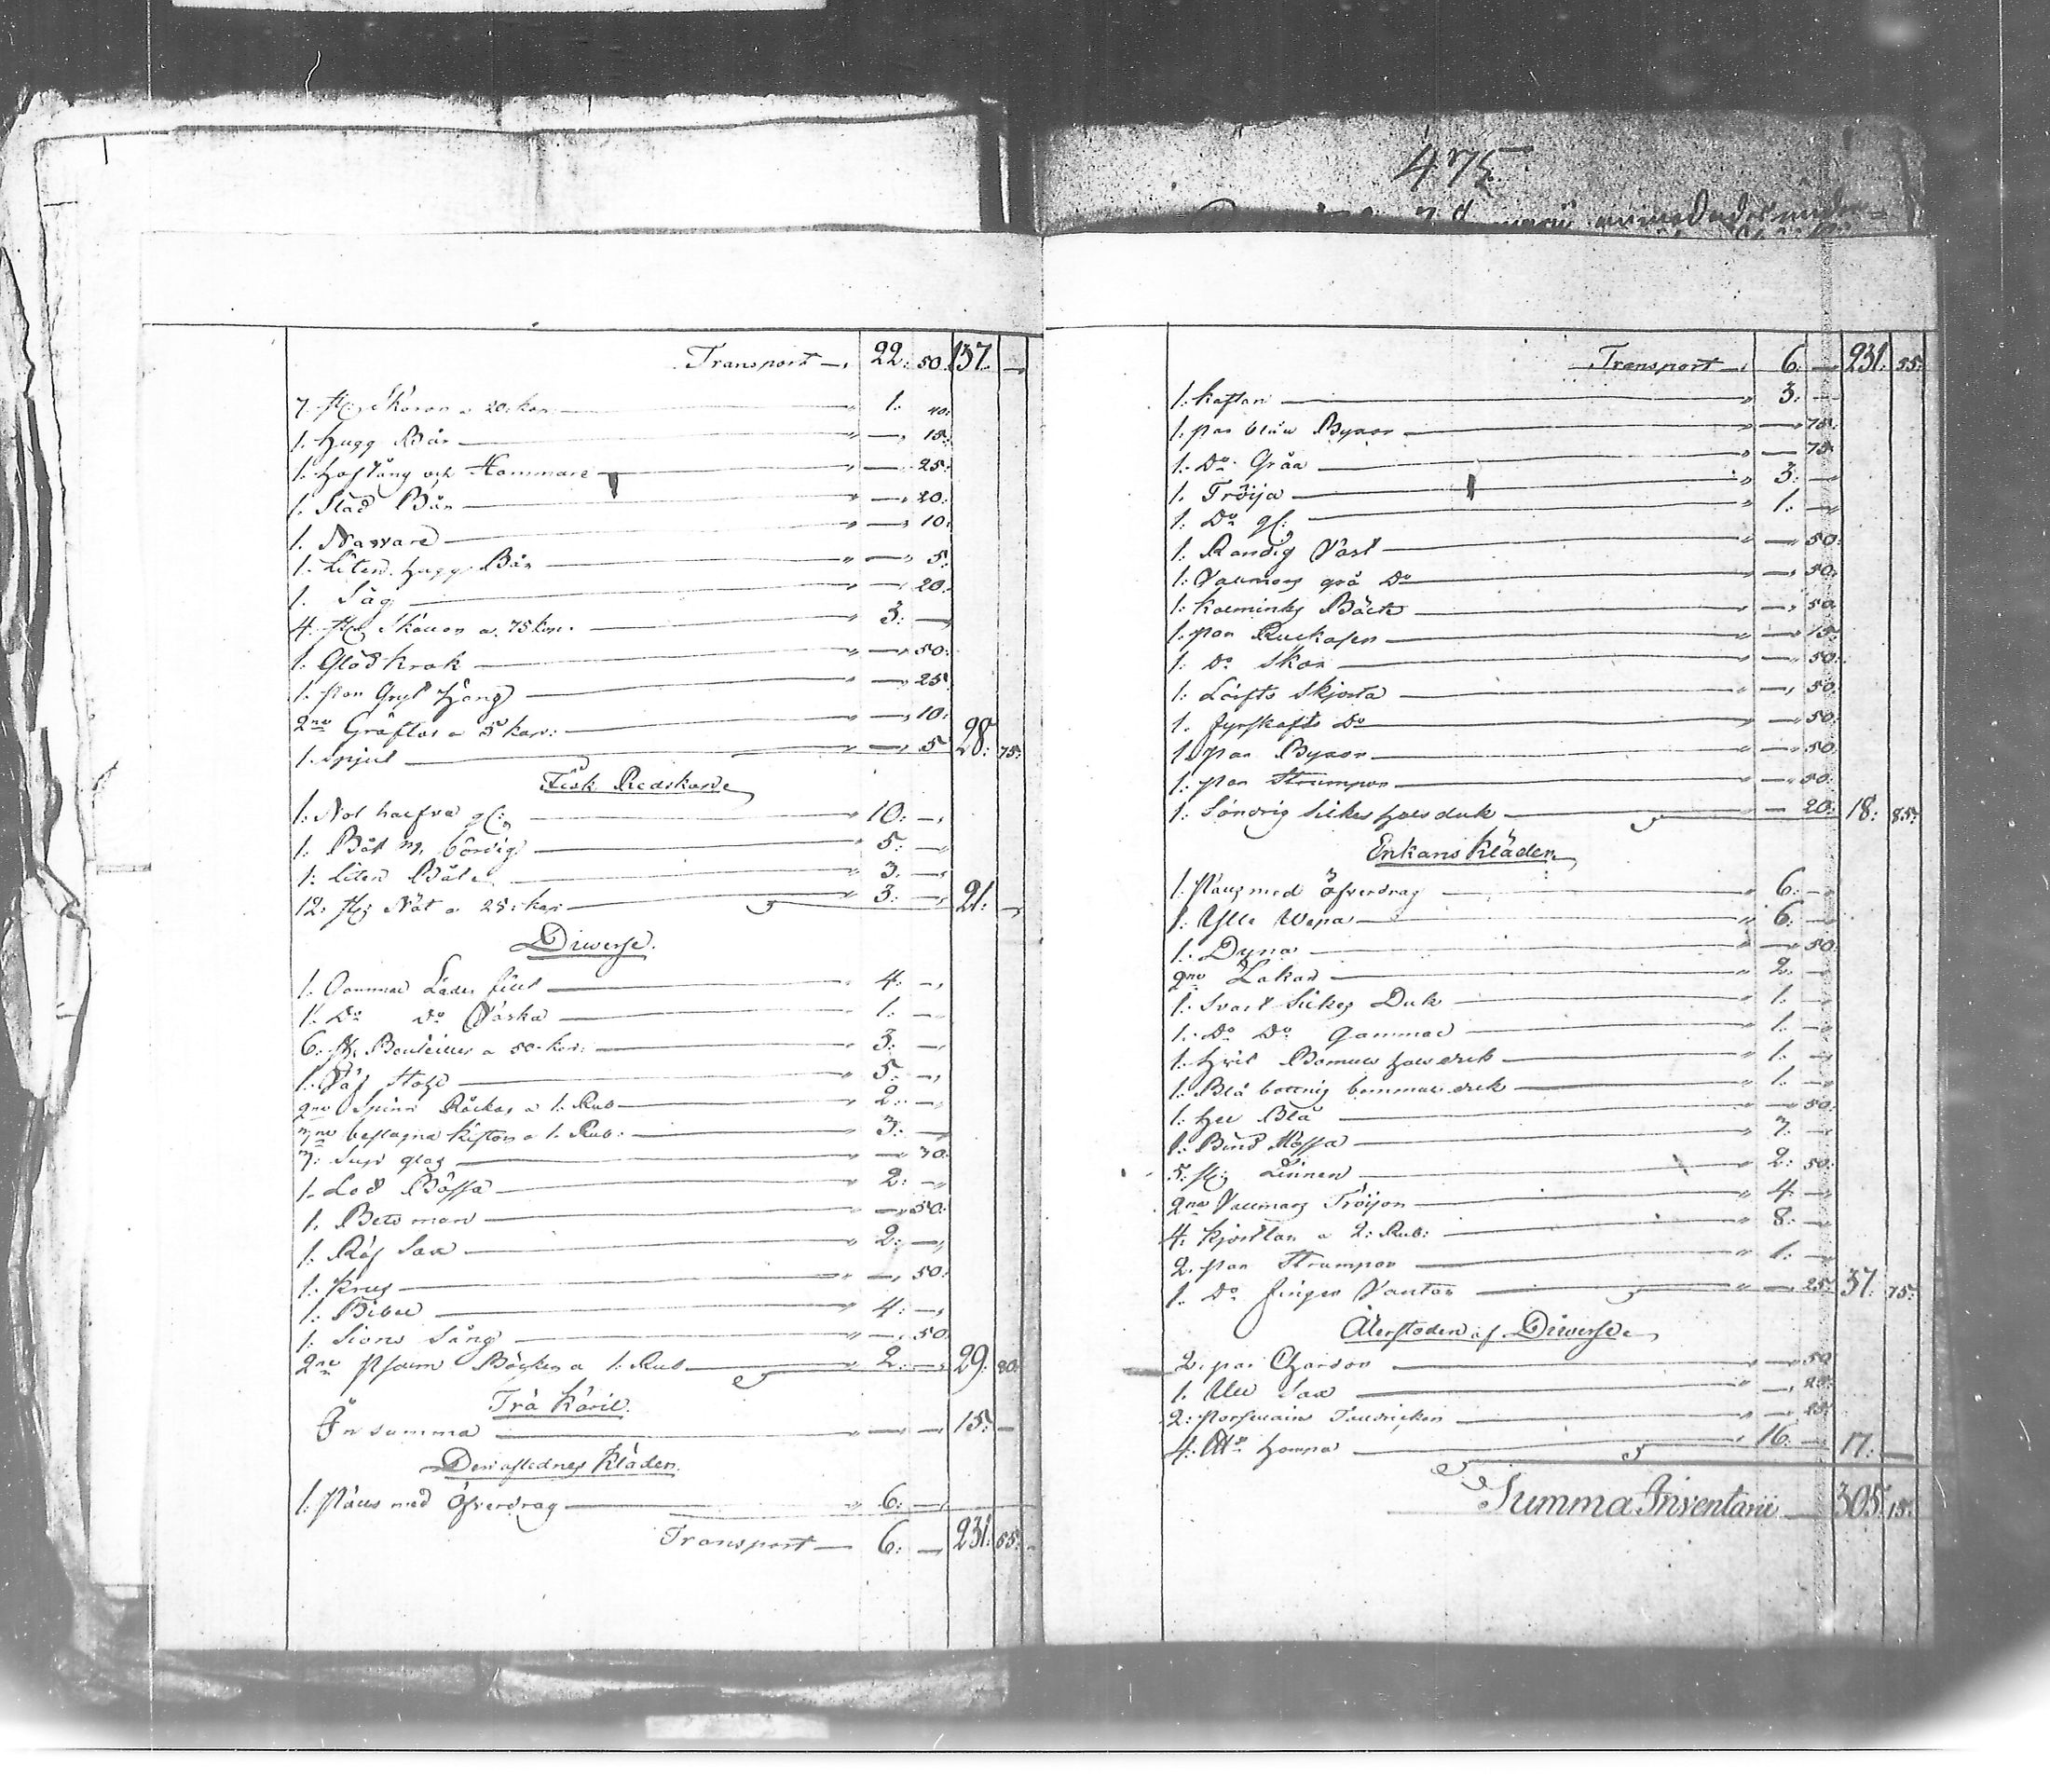 Transport —. 22: 50. 137. —
7. st: Skäror a 20: kop: — 1: 40:
1. Hugg Bår — " — 15:
1. Hoftång och Hammare — " — 25:
1. Stad Bår — " — 20:
1. Navvare — " — 10:
1. Liten Hugg Bår — " — 5:
1. Såg — " — 20:
4. st: a. 75 kop. — " 3: —
1. Glöd krak — " — 50:
1. par Gryt Häng — " — 25
2ne Gräftor a 5 kop: — " — 10:
1. Spjut — " — 5 28: 75:
Fisk Redskap
1. Not halfva gl: — " 10: —
1. Båt m. — " 5: —
1. Liten Båt — " 3: —
12: st: Nät a 25: kop: — " 3: — 21: —
Diverse.
1. Gammal Läder — " 4: —
1. Do Do Väska — " 1: —
6. st: Bouteiller a 50. kop: — " 3: —
1. Väf Stohl — " 5: —
2ne Spinn Råckar a 1. Rub — " 2: —
3ne beslagna kistor a 1. Rub: — " 3: —
3: Sup glas — " — 30:
1. Lod Bössa — " 2: —
1. Betsman — " — 50:
1. Råg Sax — " 2: —
1. Krus — " — 50:
1. Bibel — " 4: —
1. Sions Sång — " — 50
2ne Psalm Böcker a 1: Rub — " 2: — 29: 80:
Trä Käril.
In summa — " — — 15: —
Den aflednes Kläder.
1. Päls med Öfverdrag — " 6: —
Transport — 6: — 231: 55:
475.
Transport —. 6: — 231: 55:
1. Kaftan — " 3: —
1. par blåa Byxor — " — 75:
1. Do Gråa — " — 75
1. Tröija — " 3: —
1. Do gl: — " 1: —
1. Randig Väst — " — 50:
1. Vallmans grå Do — " — 50:
1. Kalminks — " — 50
1. par — " — 15:
1. Do Skor — " — 50:
1. Lärfts Skjorta — " — 50
1. Fyrskafts Do — " — 50:
1. par Byxor — " — 50
1. par Strumpor — " — 50:
1. Söndrig Silkes halsduk — " — 20: 18: 85:
Enkans Kläder
1. Päls med Öfverdrag — " 6: —
1. Ylle Vepa — " 6: —
1. Dyna — " — 50
2ne Lakan — " 2: —
1. Svart Silkes Duk — " 1: —
1. Do Do Gammal — " 1: —
1. Hvit Bomuls halsduk — " 1: —
1. Blå bottnig bommulsduk — " 1: —
1. Hel Blå — " — 50
1. Bind Mössa — " 3: —
5: st: Linnen — " 2: 50:
2ne Vallmans Tröijor — " 4: —
4. Kjortlar a 2: Rub: — " 8: —
2. par Strumpor — " 1: —
1. Do finger Vantar — " — 25: 37: 75:
Återstoden af Diverse
2. par Chardor — " — 50
1. Ull Sax — " — 25:
2: Porslains Tallricker — " — 25:
4. — 16. — 17: —
Summa Inventarii — 305: 15: